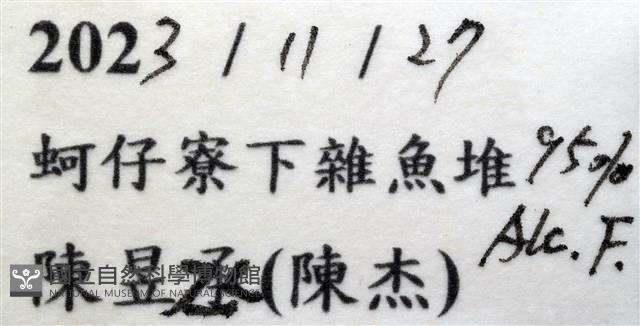 2023 / 11 / 27
蚵仔寮下雜魚堆 95%
Alc. F.
陳昱丞(陳杰)
國立自然科學博物館
NATIONAL MUSEUM OF NATURAL SCIENCE